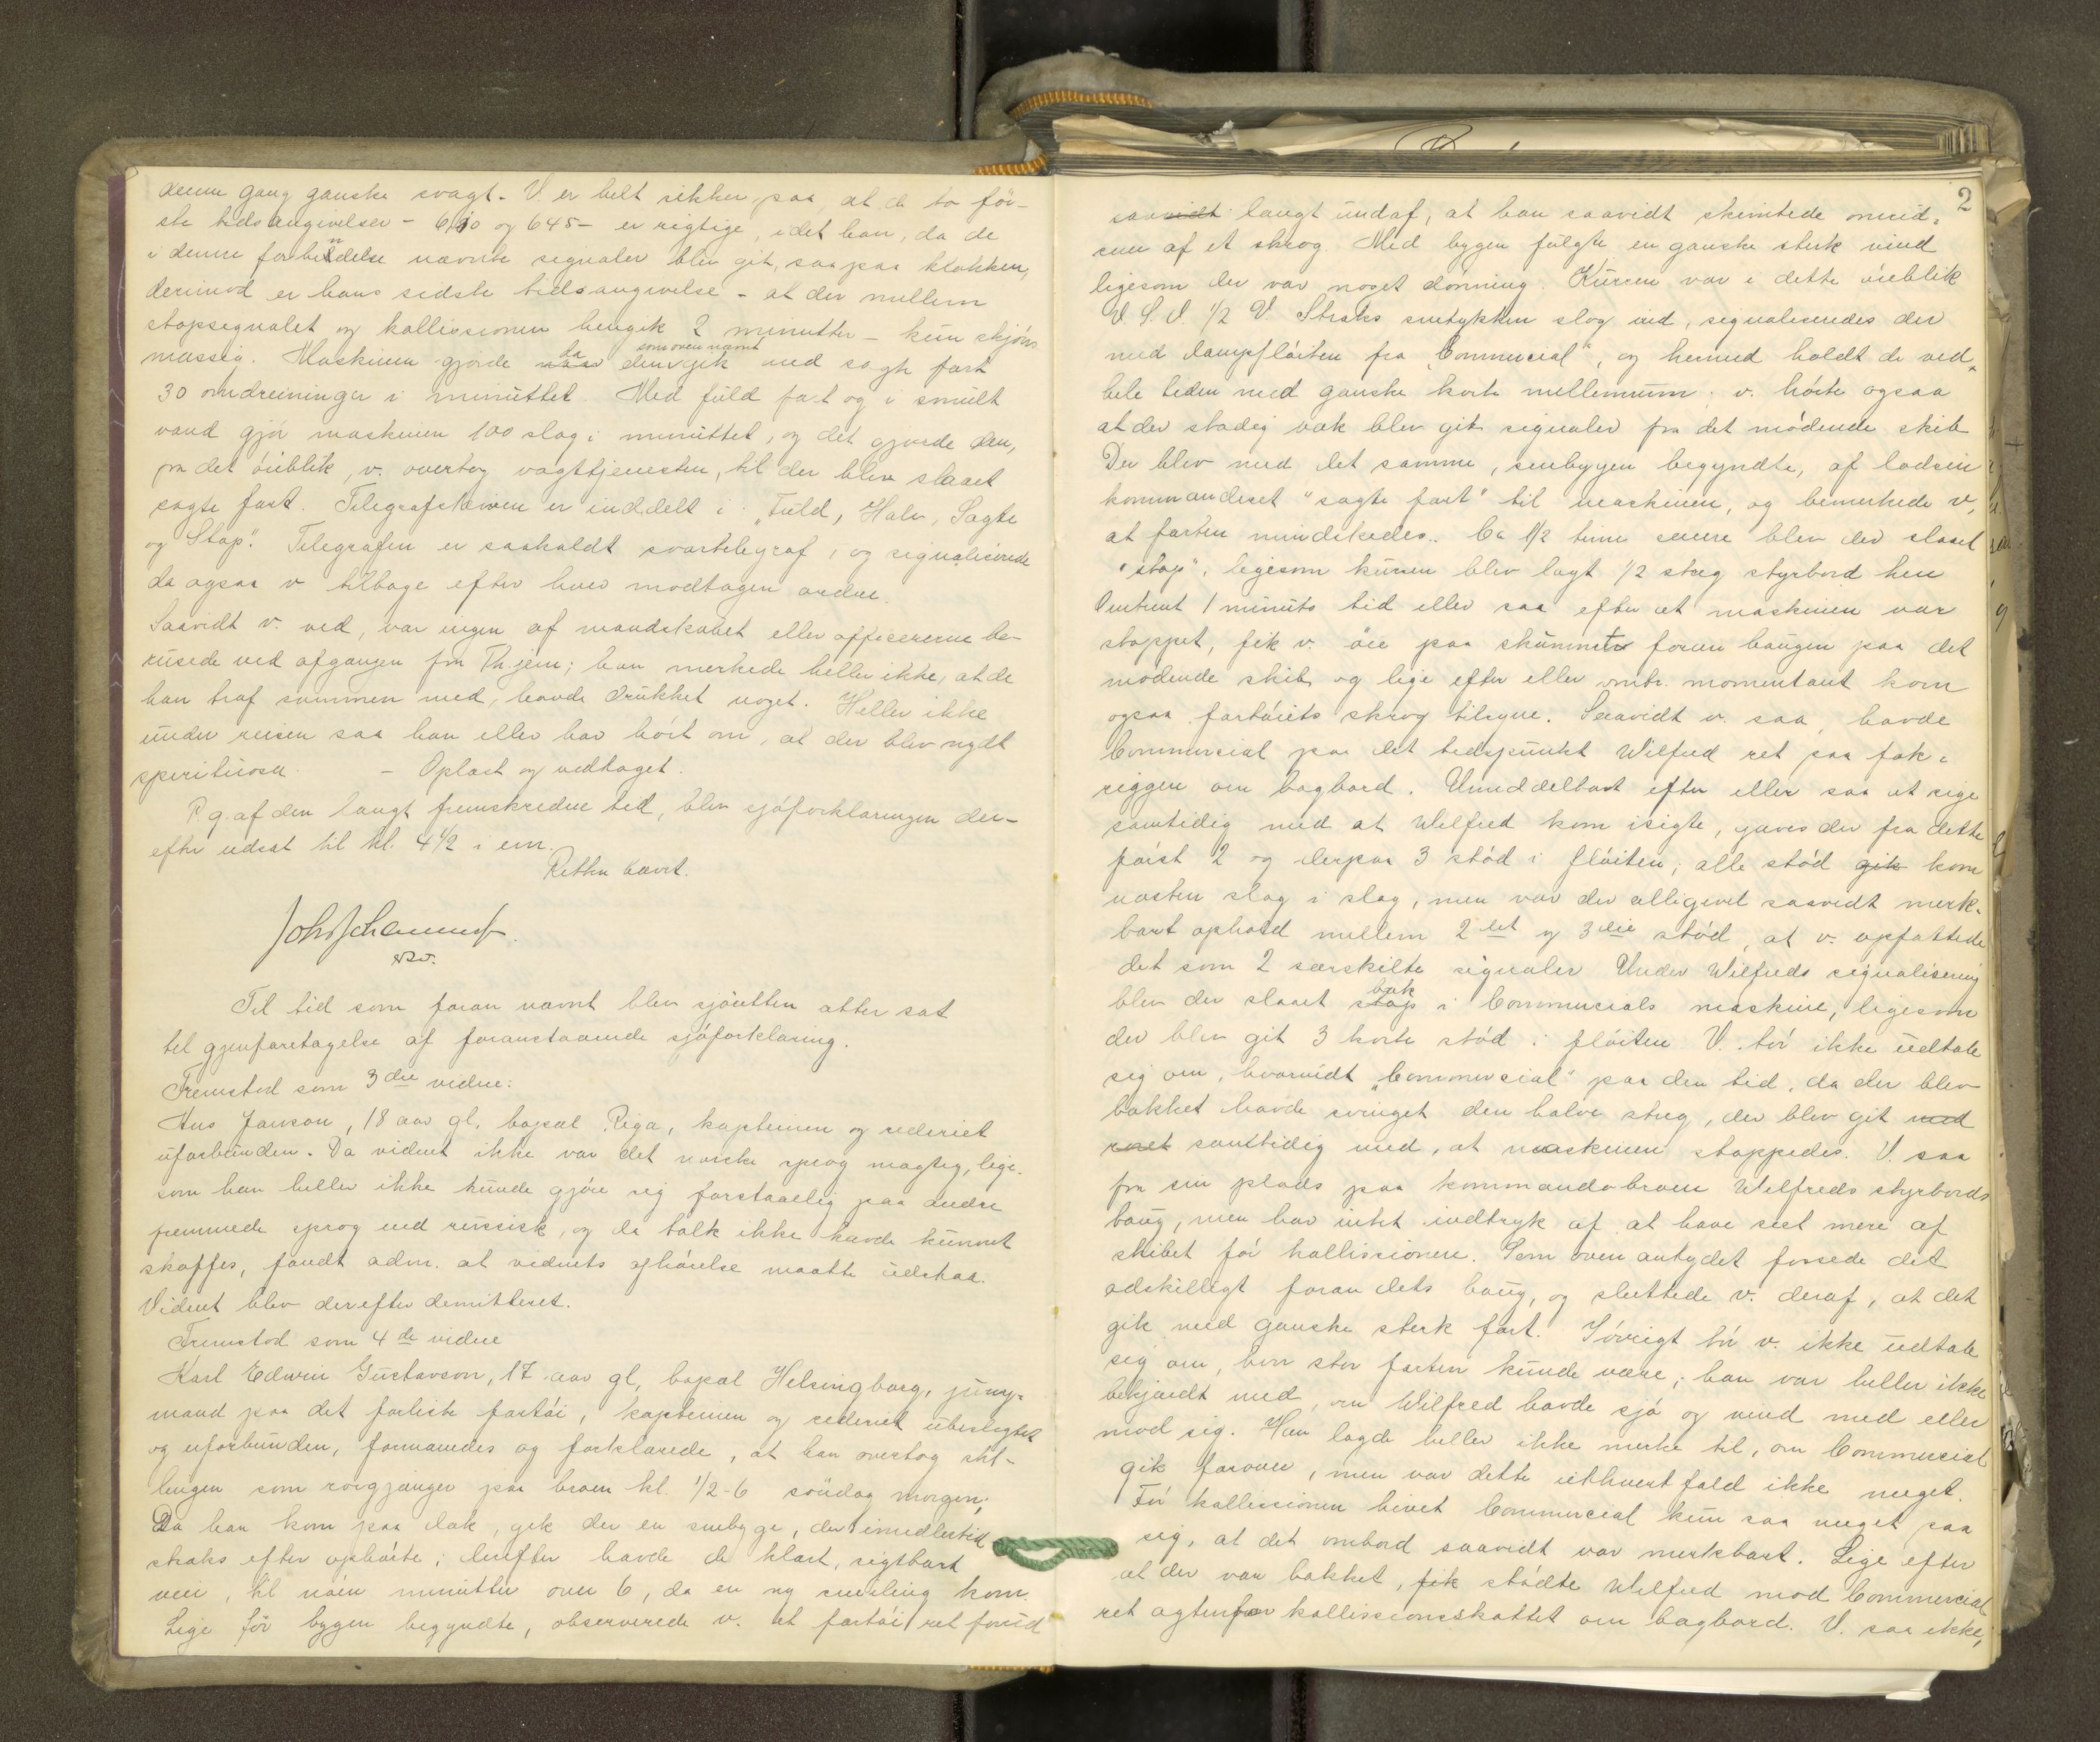 denne gang ganske svagt. V. er helt sikker paa, at de to för-
ste tidsangivelser – 610 og 645 – er rigtige, idet han, da de
i denne forbindelse nævnte signaler blev git, saa paa klokken,
derimod er hans sidste tidsangivelse – at der mellem
stopsignalet og kollissionen hengik 2 minutter – kun skjöns-
mæssig. Maskinen gjorde da den som oven nævnt gik med sagte fart
30 omdreininger i minuttet. Med fuld fart og i smult
vand gjör maskinen 100 slag i minuttet, og det gjorde den,
fra det öieblik, v. overtog vagttjenesten, til der blev slaaet
sagte fart. Telegrafskiven er inddelt i „Fuld, Halv, Sagte
og Stop". Telegrafen er saakaldt svartelegraf, og signaliserede
da ogsaa v. tilbage efter hver modtagen ordre.
Saavidt v. ved, var ingen af mandskabet eller officererne be-
rusede ved afgangen fra Th.jem; han merkede heller ikke, at de
han traf sammen med, havde drukket noget. Heller ikke
under reisen saa han eller har hört om, at der blev nydt
spirituosa. – Oplæst og vedtaget.
P.g.af den langt fremskredne tid, blev sjöforklaringen der-
efter udsat til kl. 4 1/2 i em.
Retten hævet.
Til tid som foran nævnt blev sjöretten atter sat
til gjenforetagelse af foranstaaende sjöforklaring.
Fremstod som 3die vidne:
Ans Janson, 18 aar gl. bopæl Riga, kapteinen og rederiet
uforbunden. Da vidnet ikke var det norske sprog mægtig, lige-
som han heller ikke kunde gjöre sig forstaaelig paa andre
fremmede sprog end russisk, og da tolk ikke havde kunnet
skaffes, fandt adm. at vidnets afhörelse maatte udstaa.
Vidnet blev derefter demitteret.
Fremstod som 4de vidne
Karl Edwin Gustavson, 17 aar gl, bopæl Helsingborg, jung-
mand paa det forliste fartöi, kapteinen og rederiet ubeslegtet
og uforbunden, formanedes og forklarede, at han overtog stil-
lingen som rorgjænger paa broen kl. 1/2-6 söndag morgen;
Da han kom paa dæk, gik der en snebyge, der imidlertid
straks efter ophörte; derefter havde de klart, sigtbart
veir, til nöen minutter over 6, da en ny snebling kom.
Lige för bygen begyndte, observerede v. et fartöi ret forud
2
saavidt langt undaf, at han saavidt skimtede omrid-
sene af et skrog. Med bygen fulgte en ganske sterk vind
ligesom der var noget dönning. Kursen var i dette öieblik
V. S. V. 1/2 V. Straks snetykken slog ind, signaliseredes der
med dampflöiten fra „Commercial", og hermed holdt de ved
hele tiden med ganske korte mellemrum; v. hörte ogsaa
at der stadig væk blev git signaler fra det mödende skib
Der blev med det samme, snebygen begyndte, af lodsen
kommanderet "sagte fart" til maskinen, og bemerkede v,
at farten mindskedes. Ca 1/2 time senere blev der slaaet
"stop", ligesom kursen blev lagt 1/2 streg styrbord hen
Omtrent 1 minuts tid eller saa efter at maskinen var
stoppet, fik v. öie paa skummet foran baugen paa det
mödende skib, og lige efter eller omtr. momentant kom
ogsaa fartöiets skrog tilsyne. Saavidt v. saa, havde
Commercial paa det tidspunkt Wilfred ret paa fok-
riggen om bagbord. Umiddelbart efter eller saa at sige
samtidig med at Wilfred kom isigte, gaves der fra dette
först 2 og derpaa 3 stöd i flöiten; alle stöd gik kom
næsten slag i slag, men var der alligevel saavidt merk-
bart ophold mellem 2det og 3die stöd, at v. opfattede
det som 2 særskilte signaler Under Wilfreds signalisering
blev der slaaet stop bak i Commercials maskine, ligesom
der blev git 3 korte stöd i flöiten V. tör ikke udtale
sig om, hvorvidt „Commercial" paa den tid, da der blev
bakket havde svinget den halve streg, der blev git med
roret samtidig med, at maskinen stoppedes. V. saa
fra sin plads paa kommandobroen Wilfreds styrbords
baug, men har intet indtryk af at have seet mere af
skibet för kollissionen. Som oven antydet fossede det
adskilligt foran dets baug, og sluttede v. deraf, at det
gik med ganske sterk fart. Iövrigt tör v. ikke udtale
sig om, hvor stor farten kunde være; han var heller ikke
bekjendt med, om Wilfred havde sjö og vind med eller
mod sig. Han lagde heller ikke merke til, om Commercial
gik forover, men var dette ialhvert fald ikke meget.
För kollissionen hivet Commercial kun saa meget paa
sig, at det ombord saavidt var merkbart. Lige efter
at der var bakket, fik stödte Wilfred mod Commercial
ret agtenfor kollissionsskottet om bagbord. V. saa ikke,